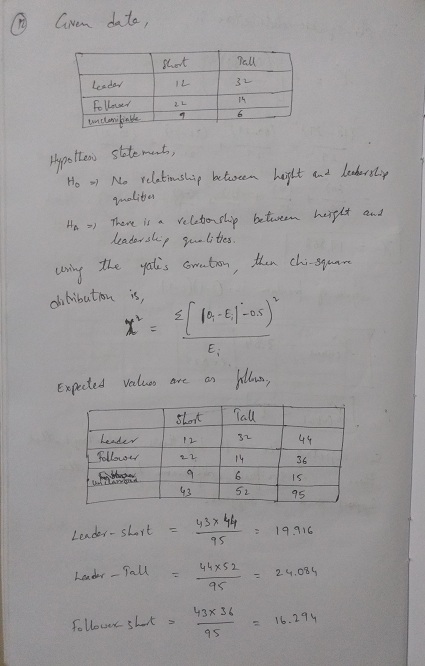 Given data,
Short Tall
Leader 12 32
Follower 22 14
unclassifiable 9 6
Hypothesis statements,
H₀ => No relationship between height and leadership
qualities
Hₐ => There is a relationship between height and
leadership qualities.
using the yate's correction, then chi-square
distribution is,
χ² = Σ[ |Oᵢ - Eᵢ| - 0.5 )²
Eᵢ
Expected values are as follows,
Short Tall
Leader 12 32 44
Follower 22 14 36
9 6 15
43 52 95
Leader - short = 43 x 44 / 95 = 19.916
Leader - Tall = 44 x 52 / 95 = 24.084
Follower short = 43 x 36 / 95 = 16.294